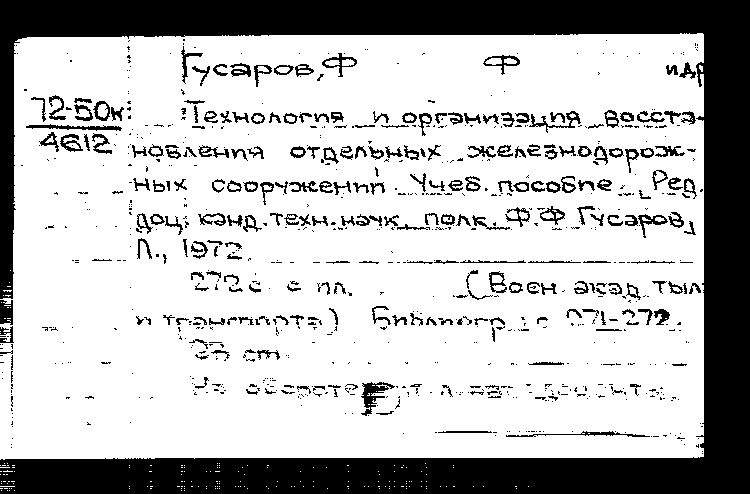 Гусаров, Ф Ф и др
72-50к Технология и организация восста-
4612 новления отдельных железнодорож-
ных сооружений. Учеб. пособие. [Ред.
доц. канд. техн. наук полк. Ф. Ф Гусаров]
Л., 1972.
272 с с ил. (Воен акад тыла
и транспорта) Библиогр: с 271-272.
см
На обороте авт